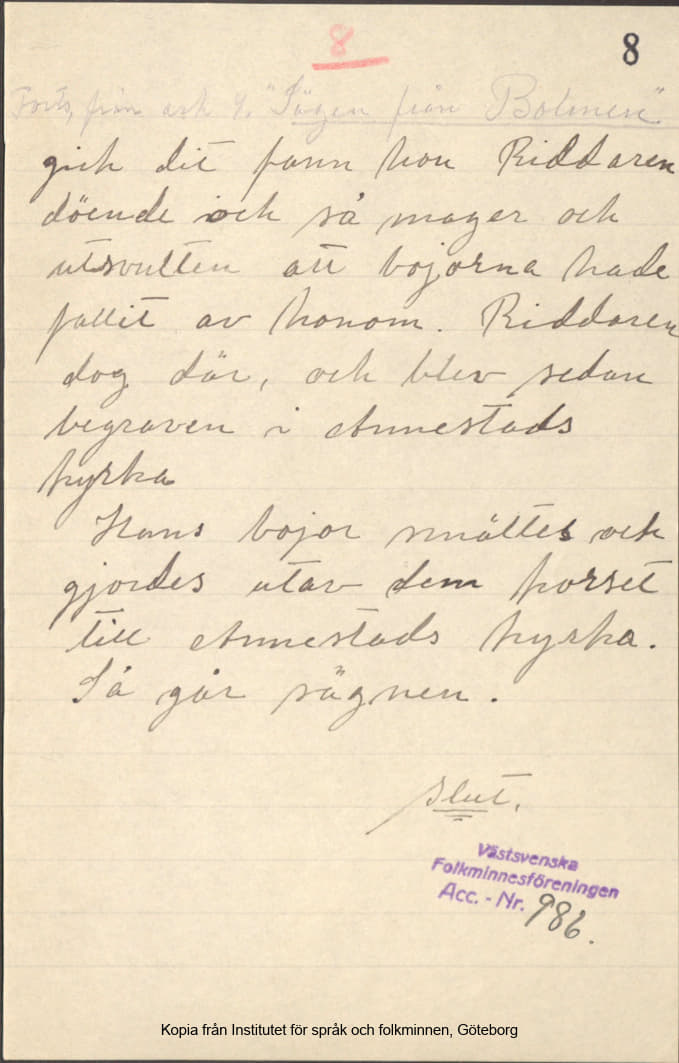 8
8
Forts, från ark 7. "Sägen från Bolmen"
gick dit fann hon Riddaren
döende och så mager och
utsvulten att bojorna hade
fallit av honom. Riddaren
dog där, och blev sedan
begraven i Annestads
kyrka
Hans bojor smältes och
gjordes utav dem korset
till Annestads kyrka.
Så går sägnen.
Slut.
Västsvenska
Folkminnesföreningen
Acc. - Nr. 986.
Kopia från Institutet för språk och folkminnen, Göteborg